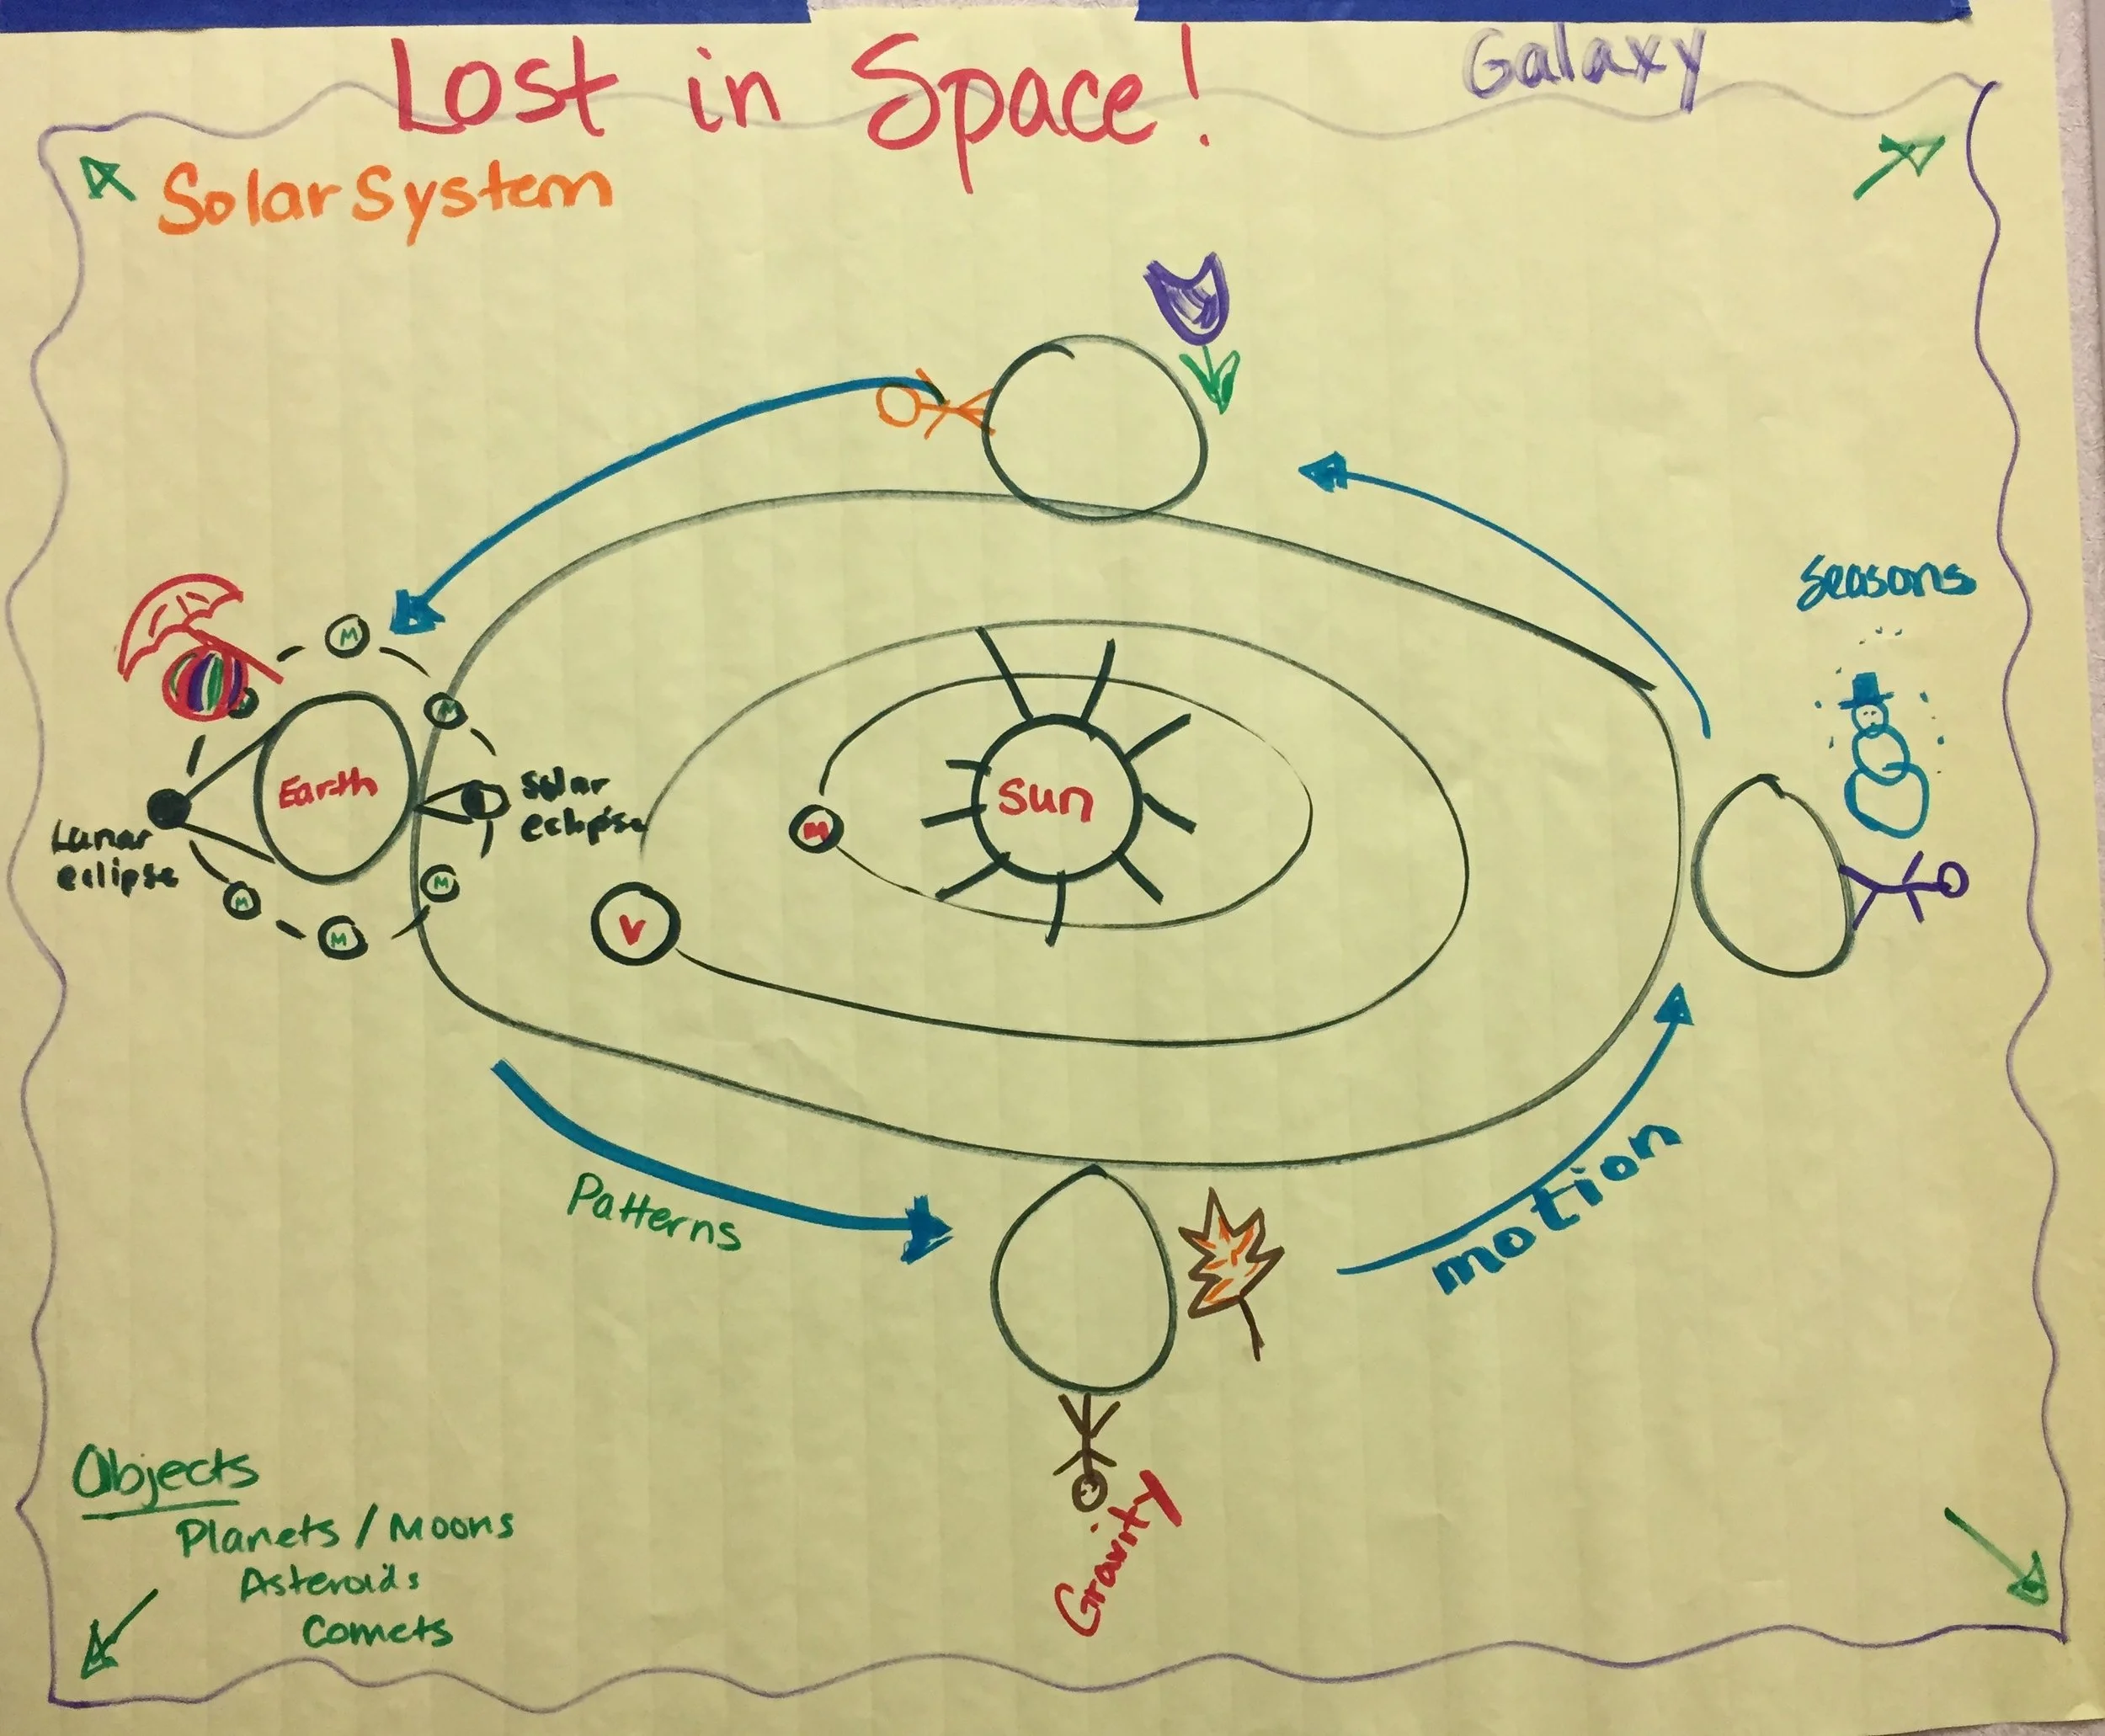 Lost in Space!
Galaxy
Solar System
Seasons
M
M
Earth
Solar
eclipse
Lunar
eclipse
M
M
M
Sun
m
V
Patterns
motion
Gravity
Objects
Planets / Moons
Asteroids
Comets